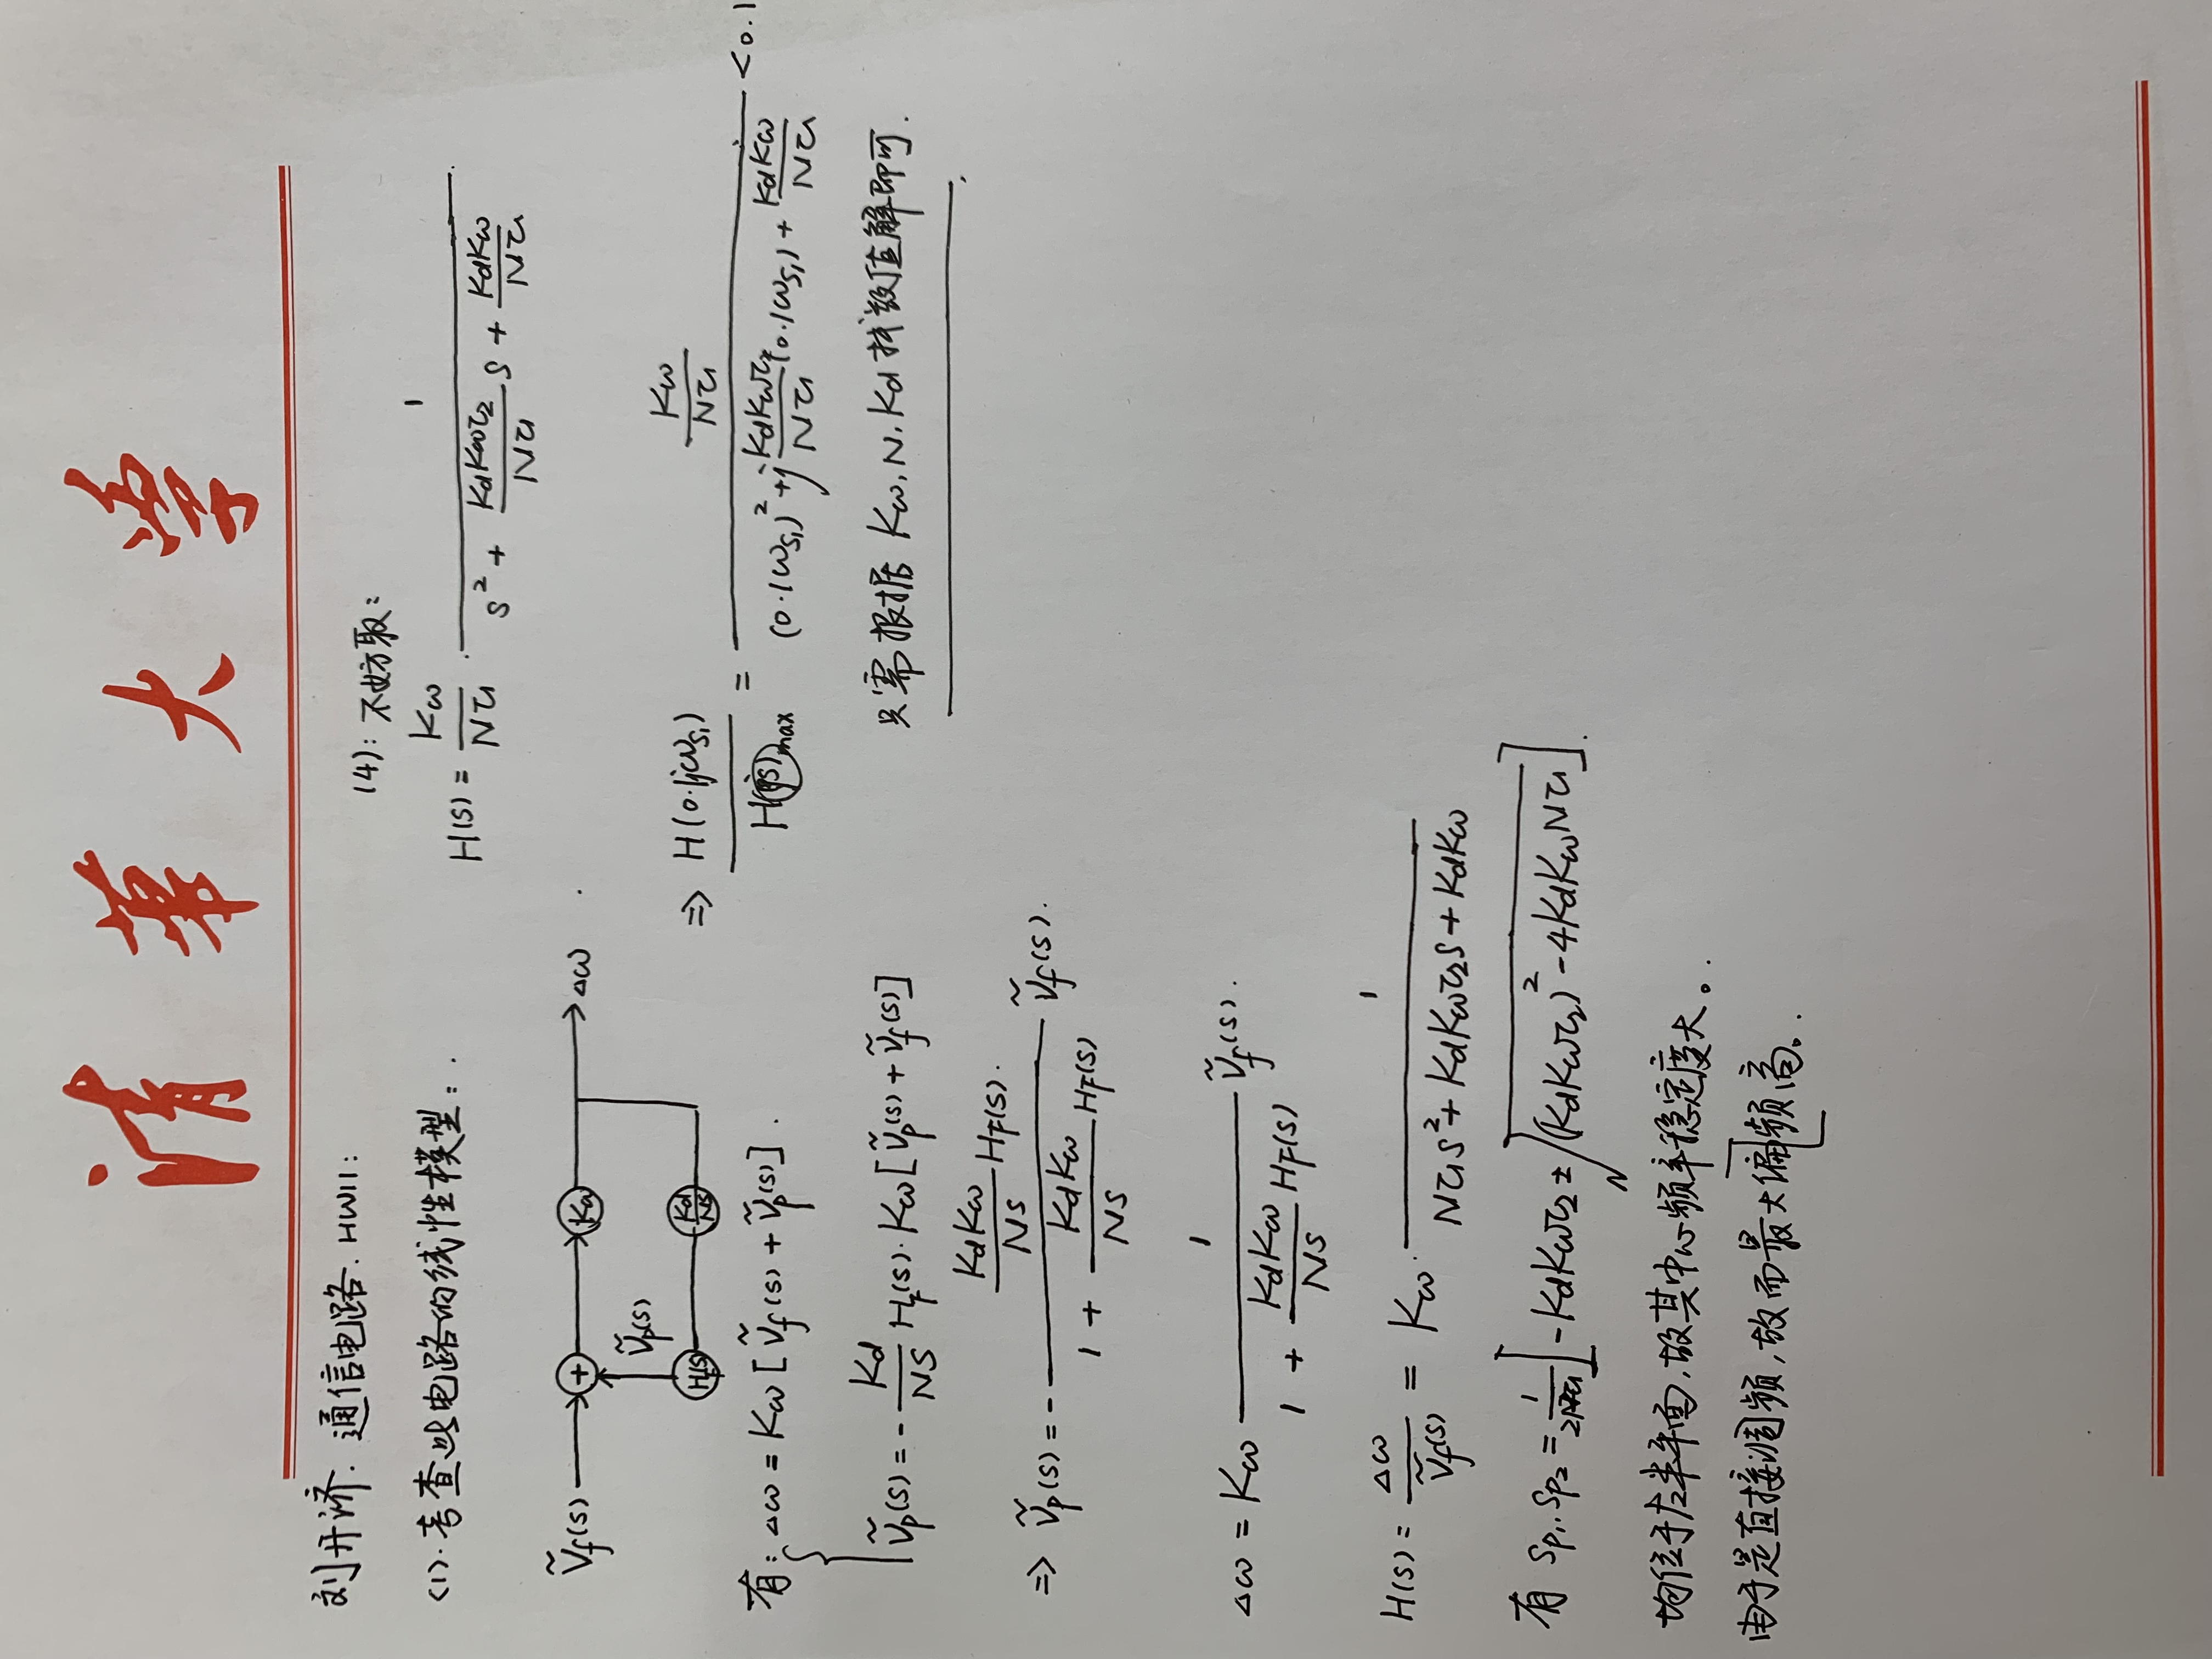 清華大学
刘开济. 通信电路. HW11:
(1). 考查此电路的线性模型: .
Ṽf(s) → + → Kω → Δω
Ṽp(s)
HF(s) Kd/NS
有: Δω = Kω [Ṽf(s) + Ṽp(s)].
Ṽp(s) = - Kd/NS HF(s). Kω [Ṽp(s) + Ṽf(s)]
⇒ Ṽp(s) = - (KdKω/NS HF(s)) / (1 + KdKω/NS HF(s)) Ṽf(s).
Δω = Kω 1/(1 + KdKω/NS HF(s)) Ṽf(s).
H(s) = Δω/Ṽf(s) = Kω · 1/(Nτ₁s² + KdKωτ₂s + KdKω)
有 Sp₁, Sp₂ = 1/2Nτ₁ [-KdKωτ₂ ± √((KdKωτ₂)² - 4KdKωNτ₁)].
均位于左半平面,故其中心频率稳定度大。.
由于是直接调频,故而最大偏频高。.
(4): 不妨取:
H(s) = Kω/Nτ₁ · 1/(s² + KdKωτ₂/Nτ₁ s + KdKω/Nτ₁)
⇒ H(0.1jωs₁)/H(js)max = (Kω/Nτ₁)/((0.1ωs₁)² + j KdKωτ₂/Nτ₁ (0.1ωs₁) + KdKω/Nτ₁) < 0.1
只需根据 Kω, N, Kd 找数值解即可.